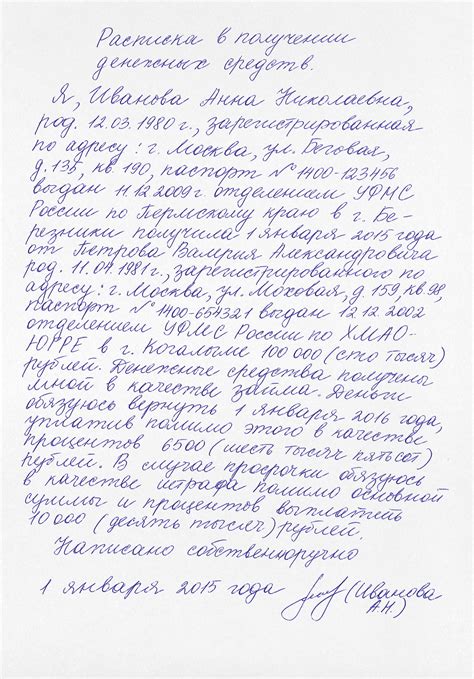 Расписка в получении
денежных средств.
Я, Иванова Анна Николаевна,
род. 12.03.1980 г., зарегистрированная
по адресу: г. Москва, ул. Беговая,
д. 135, кв. 190, паспорт № 1400-123456
выдан 11.12.2009 г. отделением УФМС
России по Пермскому краю в г. Бе-
резники получила 1 января 2015 года
от Петрова Валерия Александровича
род. 11.04.1981 г., зарегистрированного по
адресу: г. Москва, ул. Моховая, д. 159, кв. 98,
паспорт № 1400-654321 выдан 12.12.2002
отделением УФМС России по ХМАО-
ЮГРЕ в г. Когалыме 100 000 (сто тысяч)
рублей. Денежные средства получены
мной в качестве займа. Деньги
обязуюсь вернуть 1 января 2016 года,
уплатив помимо этого в качестве
процентов 6500 (шесть тысяч пятьсот)
рублей. В случае просрочки обязуюсь
в качестве штрафа помимо основной
суммы и процентов выплатить
10 000 (десять тысяч) рублей.
Написано собственноручно
1 января 2015 года (Иванова
А.Н.)